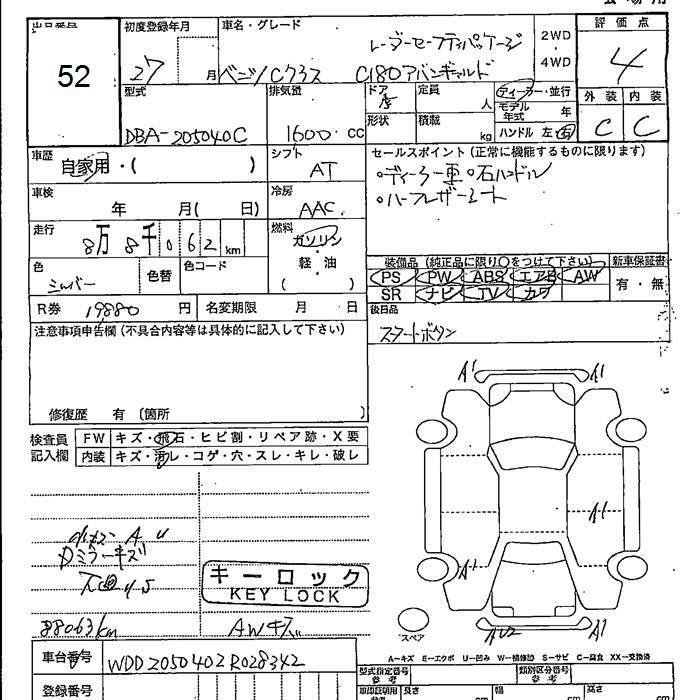 出品番号
52
初度登録年月
27 月
車名・グレード
レーダーセーフティパッケージ
ベンツ Cクラス C180アバンギャルド
2WD・4WD
評価点
4
外装 内装
C C
型式
DBA-205040C
排気量
1600 CC
ドア
5
定員
人
形状
積載
kg
ディーラー・並行
モデル年式 年
ハンドル 左・右
車歴
自家用・( )
シフト
AT
セールスポイント(正常に機能するものに限ります)
。ディーラー車 。右ハンドル
。ハーフレザーシート
車検
年 月( 日)
冷房
AAC
走行
8万8千062km
燃料
ガソリン・軽・油( )
色
シルバー
色替
色コード
装備品(純正品に限り○をつけて下さい)
新車保証書
PS PW ABS エアB AW
SR ナビ TV カワ
有・無
R券 19880 円
名変期限 月 日
後日品
スタートボタン
注意事項申告欄(不具合内容等は具体的に記入して下さい)
修復歴 有(箇所 )
検査員記入欄
FW キズ・飛石・ヒビ割・リペア跡・X要
内装 キズ・汚レ・コゲ・穴・スレ・キレ・破レ
A1 A1
A1
A1
AU2 A1
A U
ミラーキズ
キーロック
KEY LOCK
88063km
AWキズ
スペア
A-キズ E-エクボ U-凹み W-補修跡 S-サビ C-腐食 XX-交換済
車台番号
WDD2050402R028342
登録番号
型式指定番号 参考
類別区分番号 参考
長さ 幅 高さ